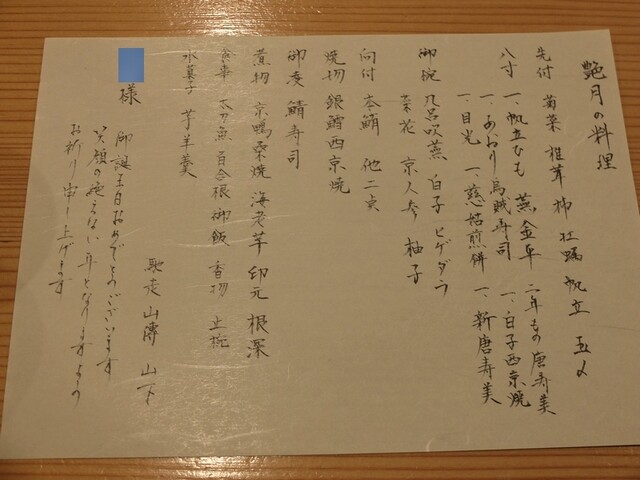 艶月の料理
先付 菊菜 椎茸 柿 牡蠣 帆立 玉〆
八寸 一、帆立ひも 蕪金平 二年もの唐寿美
一、あおり烏賊寿司 一、白子西京焼
一、目光 一、慈姑煎餅 一、新唐寿美
御椀 風呂吹蕪 白子 ヒゲダラ
菜花 京人参 柚子
向付 本鮪 他二点
焼物 銀鱈西京焼
御凌 鯖寿司
煮物 京鴨桑焼 海老芋 印元 根深
食事 太刀魚百合根御飯 香物 止椀
水菓子 芋羊羹
様
御誕生日おめでとうございます
笑顔の絶えない年となりますよう
お祈り申し上げます
馳走 山 山下